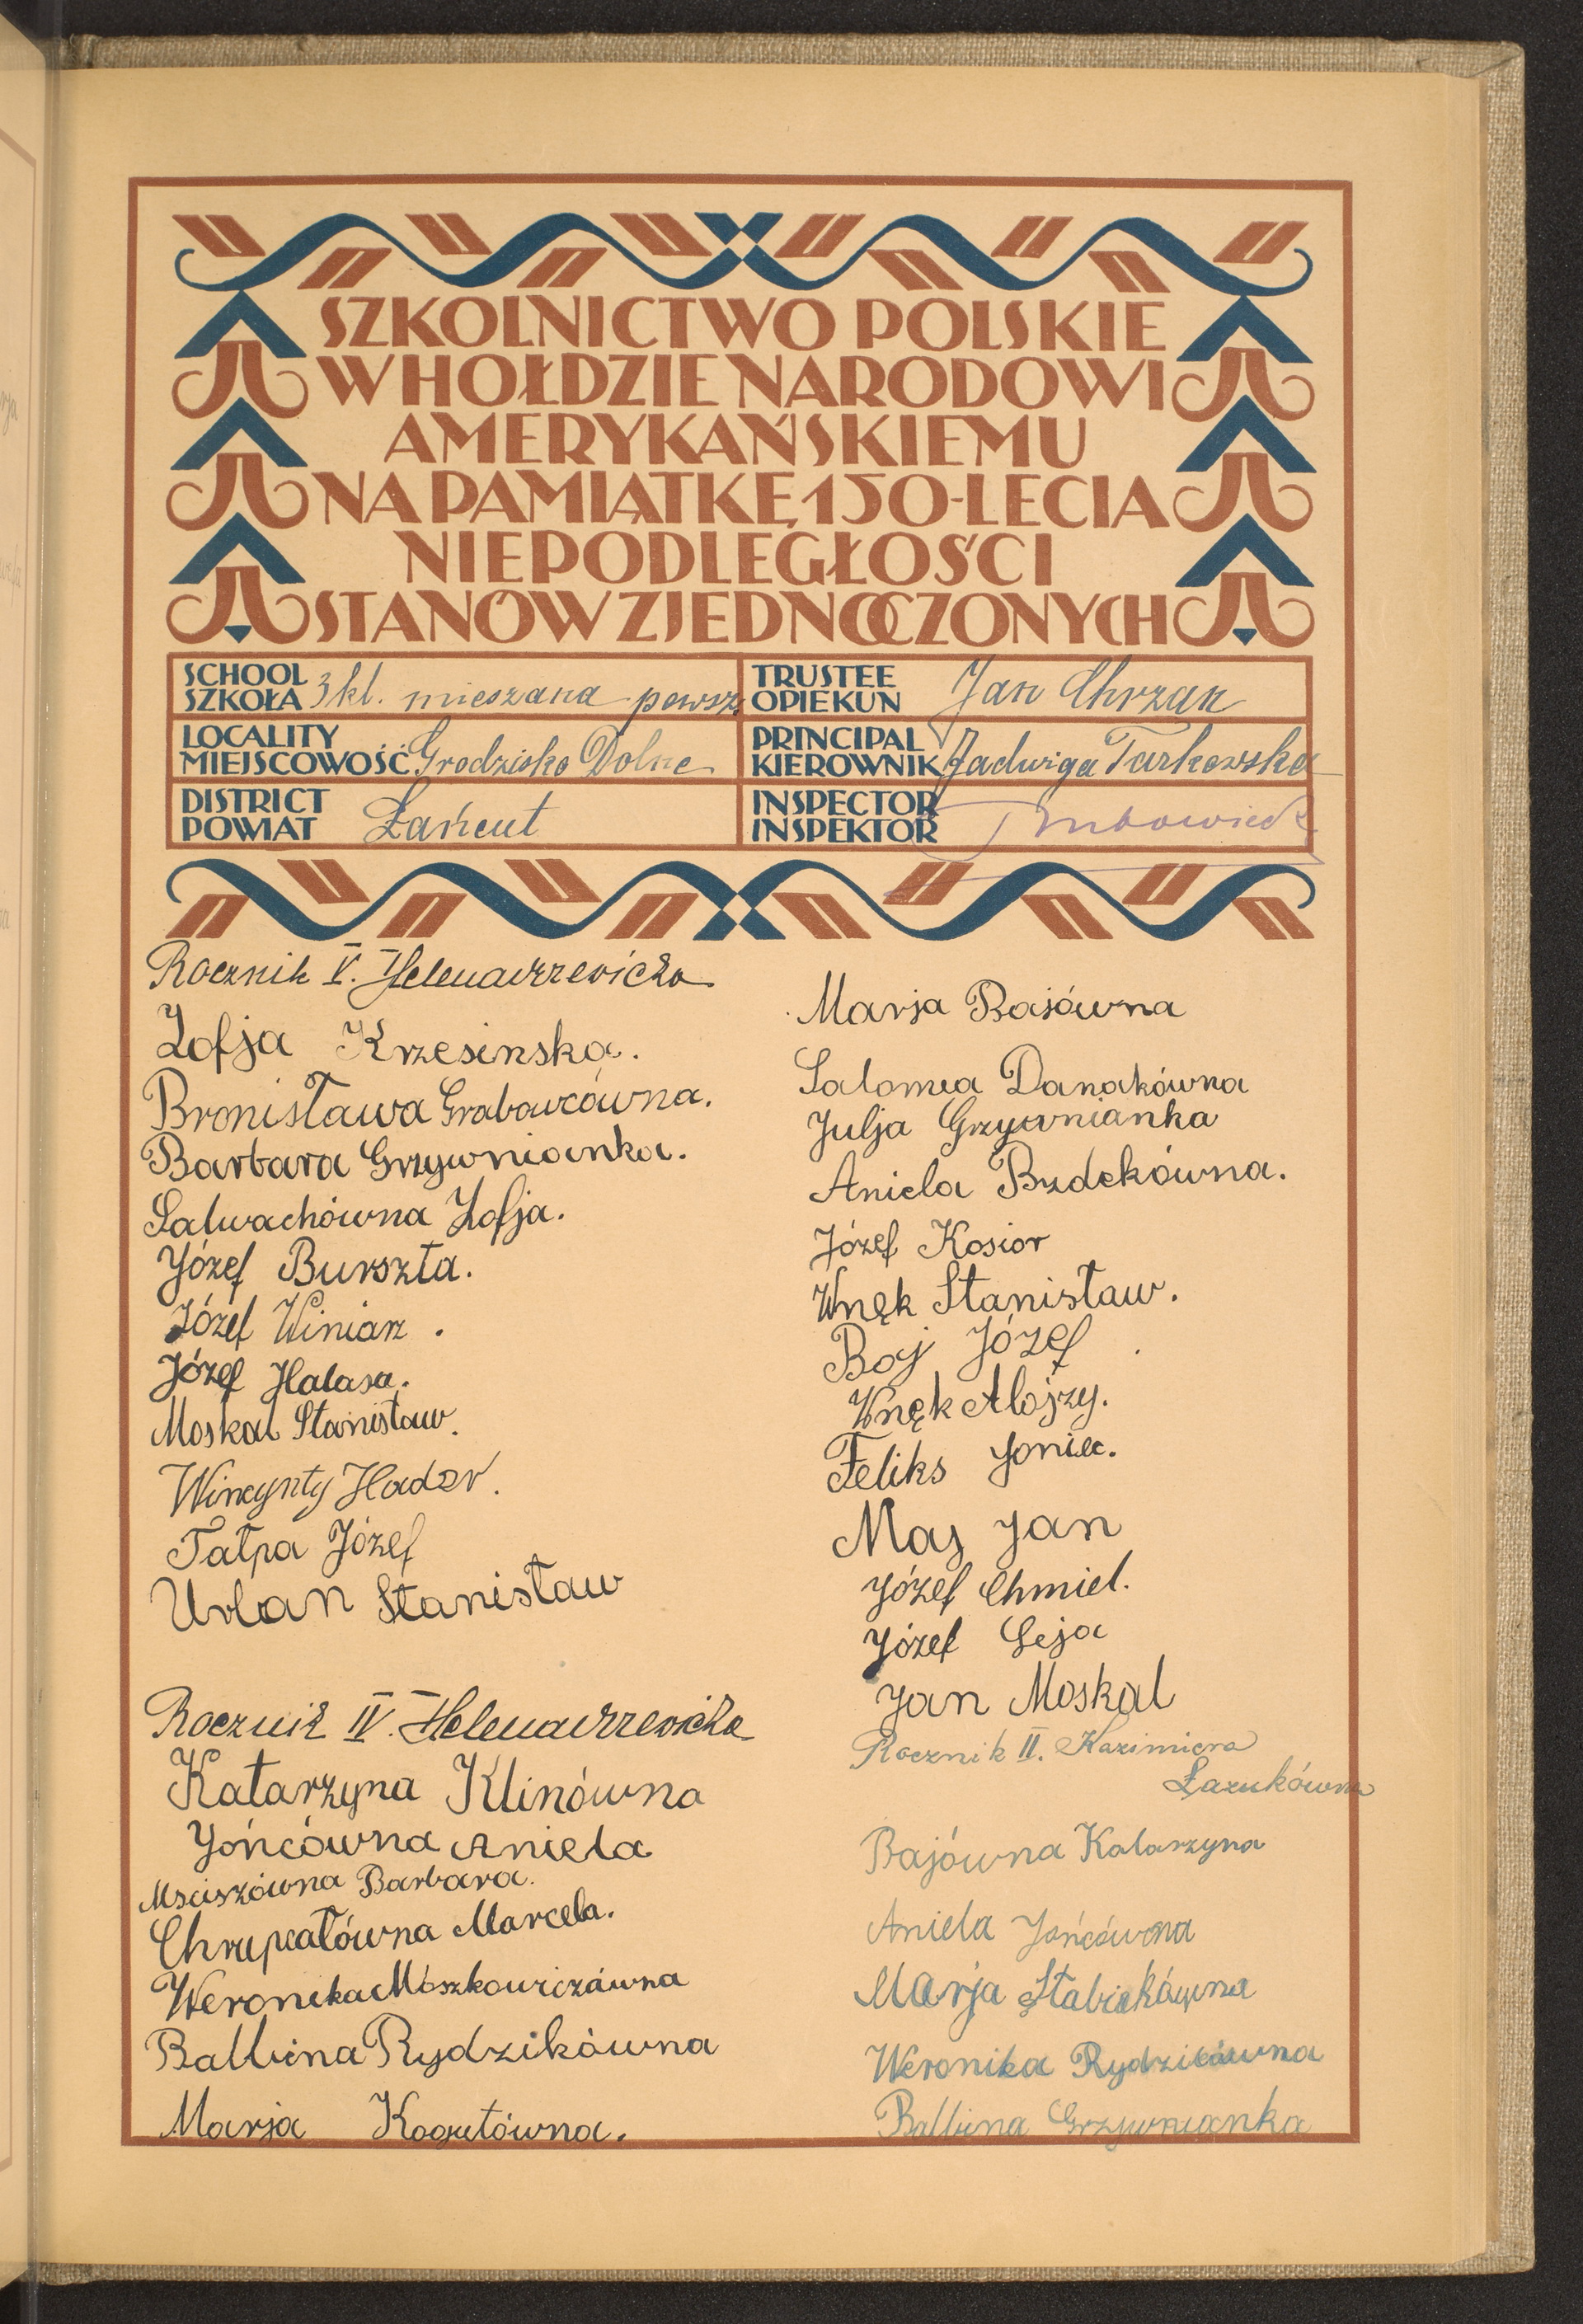 SZKOLNICTWO POLSKIE
W HOŁDZIE NARODOWI
AMERYKAŃSKIEMU
NA PAMIĄTKĘ 150-LECIA
NIEPODLEGŁOŚCI
STANÓW ZJEDNOCZONYCH
SCHOOL
SZKOŁA 3 kl. mieszana powsz.
TRUSTEE
OPIEKUN Jan Chrzan
LOCALITY
MIEJSCOWOŚĆ Grodzisko Dolne
PRINCIPAL
KIEROWNIK Jadwiga Tarkowska
DISTRICT
POWIAT Łańcut
INSPECTOR
INSPEKTOR
Rocznik V. Helena
Zofja Krzesinska.
Bronisława Grabowcówna.
Barbara Grzywnianka.
Salwachówna Zofja.
Józef Burszta.
Józef Winiarz.
Józef Halasa.
Moskal Stanisław.
Wincynty Hader.
Tałpa Józef
Urban Stanisław
Rocznik IV. Helena
Katarzyna Klinówna
Jońcówna Aniela
Msciszówna Barbara.
Chrupcałówna Marcela.
Weronika Moszkowiczówna
Balbina Rydzikówna
Marja Kogutówna.
Marja Bajówna
Salomea Danakówna
Julja Grzywnianka
Aniela Bzdekówna.
Józef Kosior
Wnęk Stanisław.
Baj Józef
Wnęk Alojzy.
Feliks Joniec.
Maj Jan
Józef Chmiel.
Józef Leja
Jan Moskal
Rocznik II. Kazimiera
Łazukówna
Bajówna Katarzyna
Aniela Jońcówna
Marja Stabiekówna
Weronika Rydzikówna
Balbina Grzywnianka